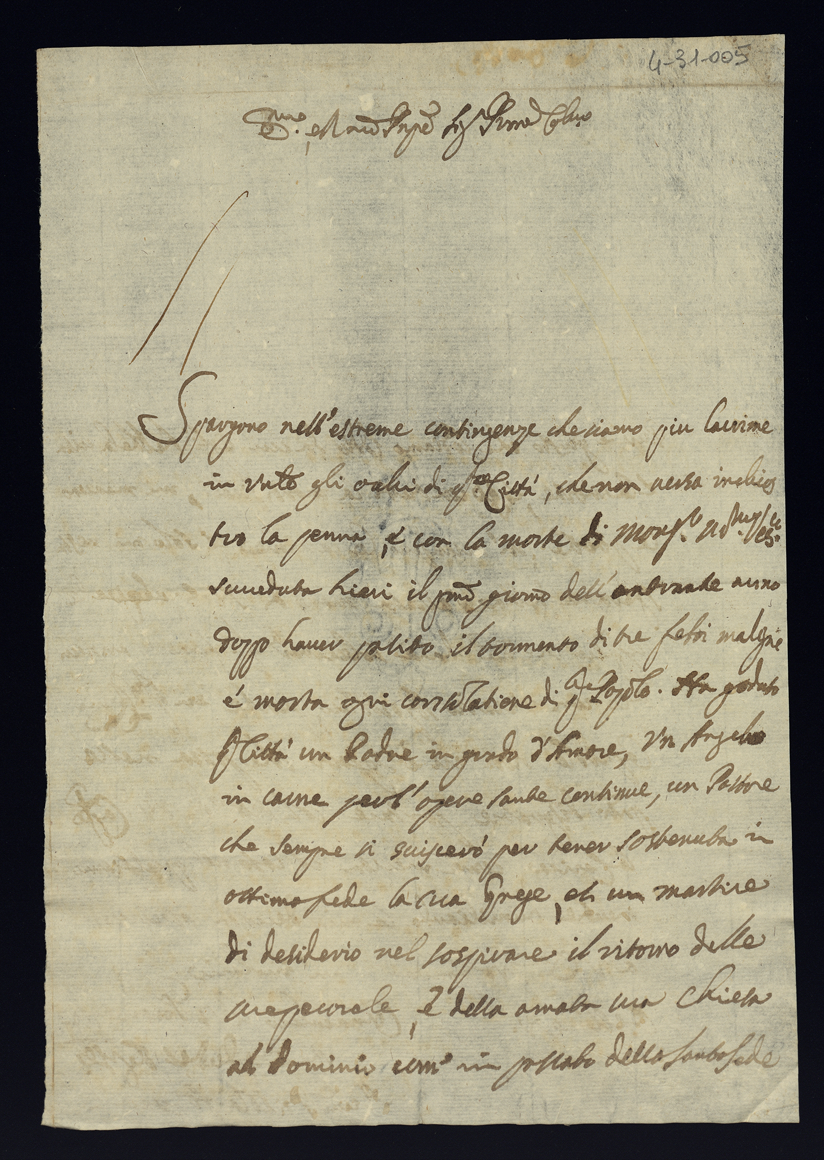 4-31-005
Sig.
Spargono nell'estreme contingenze che siamo piu lacrime
in gli ochi di Città, che non versa
tro la penna, e con la morte di Mons.
succeduta hieri il giorno dell'entrante anno
doppo haver patito il tormento di tre febri maligne
é morta ogni consolatione di Popolo. Ha goduto
Città un Padre in grado d'Amore, Un Angelo
in carne perl'opere sante continue, un Pastore
che sempre si per tener sostenuta in
ottima fede la sua Grege, et un martire
di desiderio nel sospirare il ritorno delle
sue pecorele, e della amata sua Chiesa
al Dominio in passato della Santa Sede